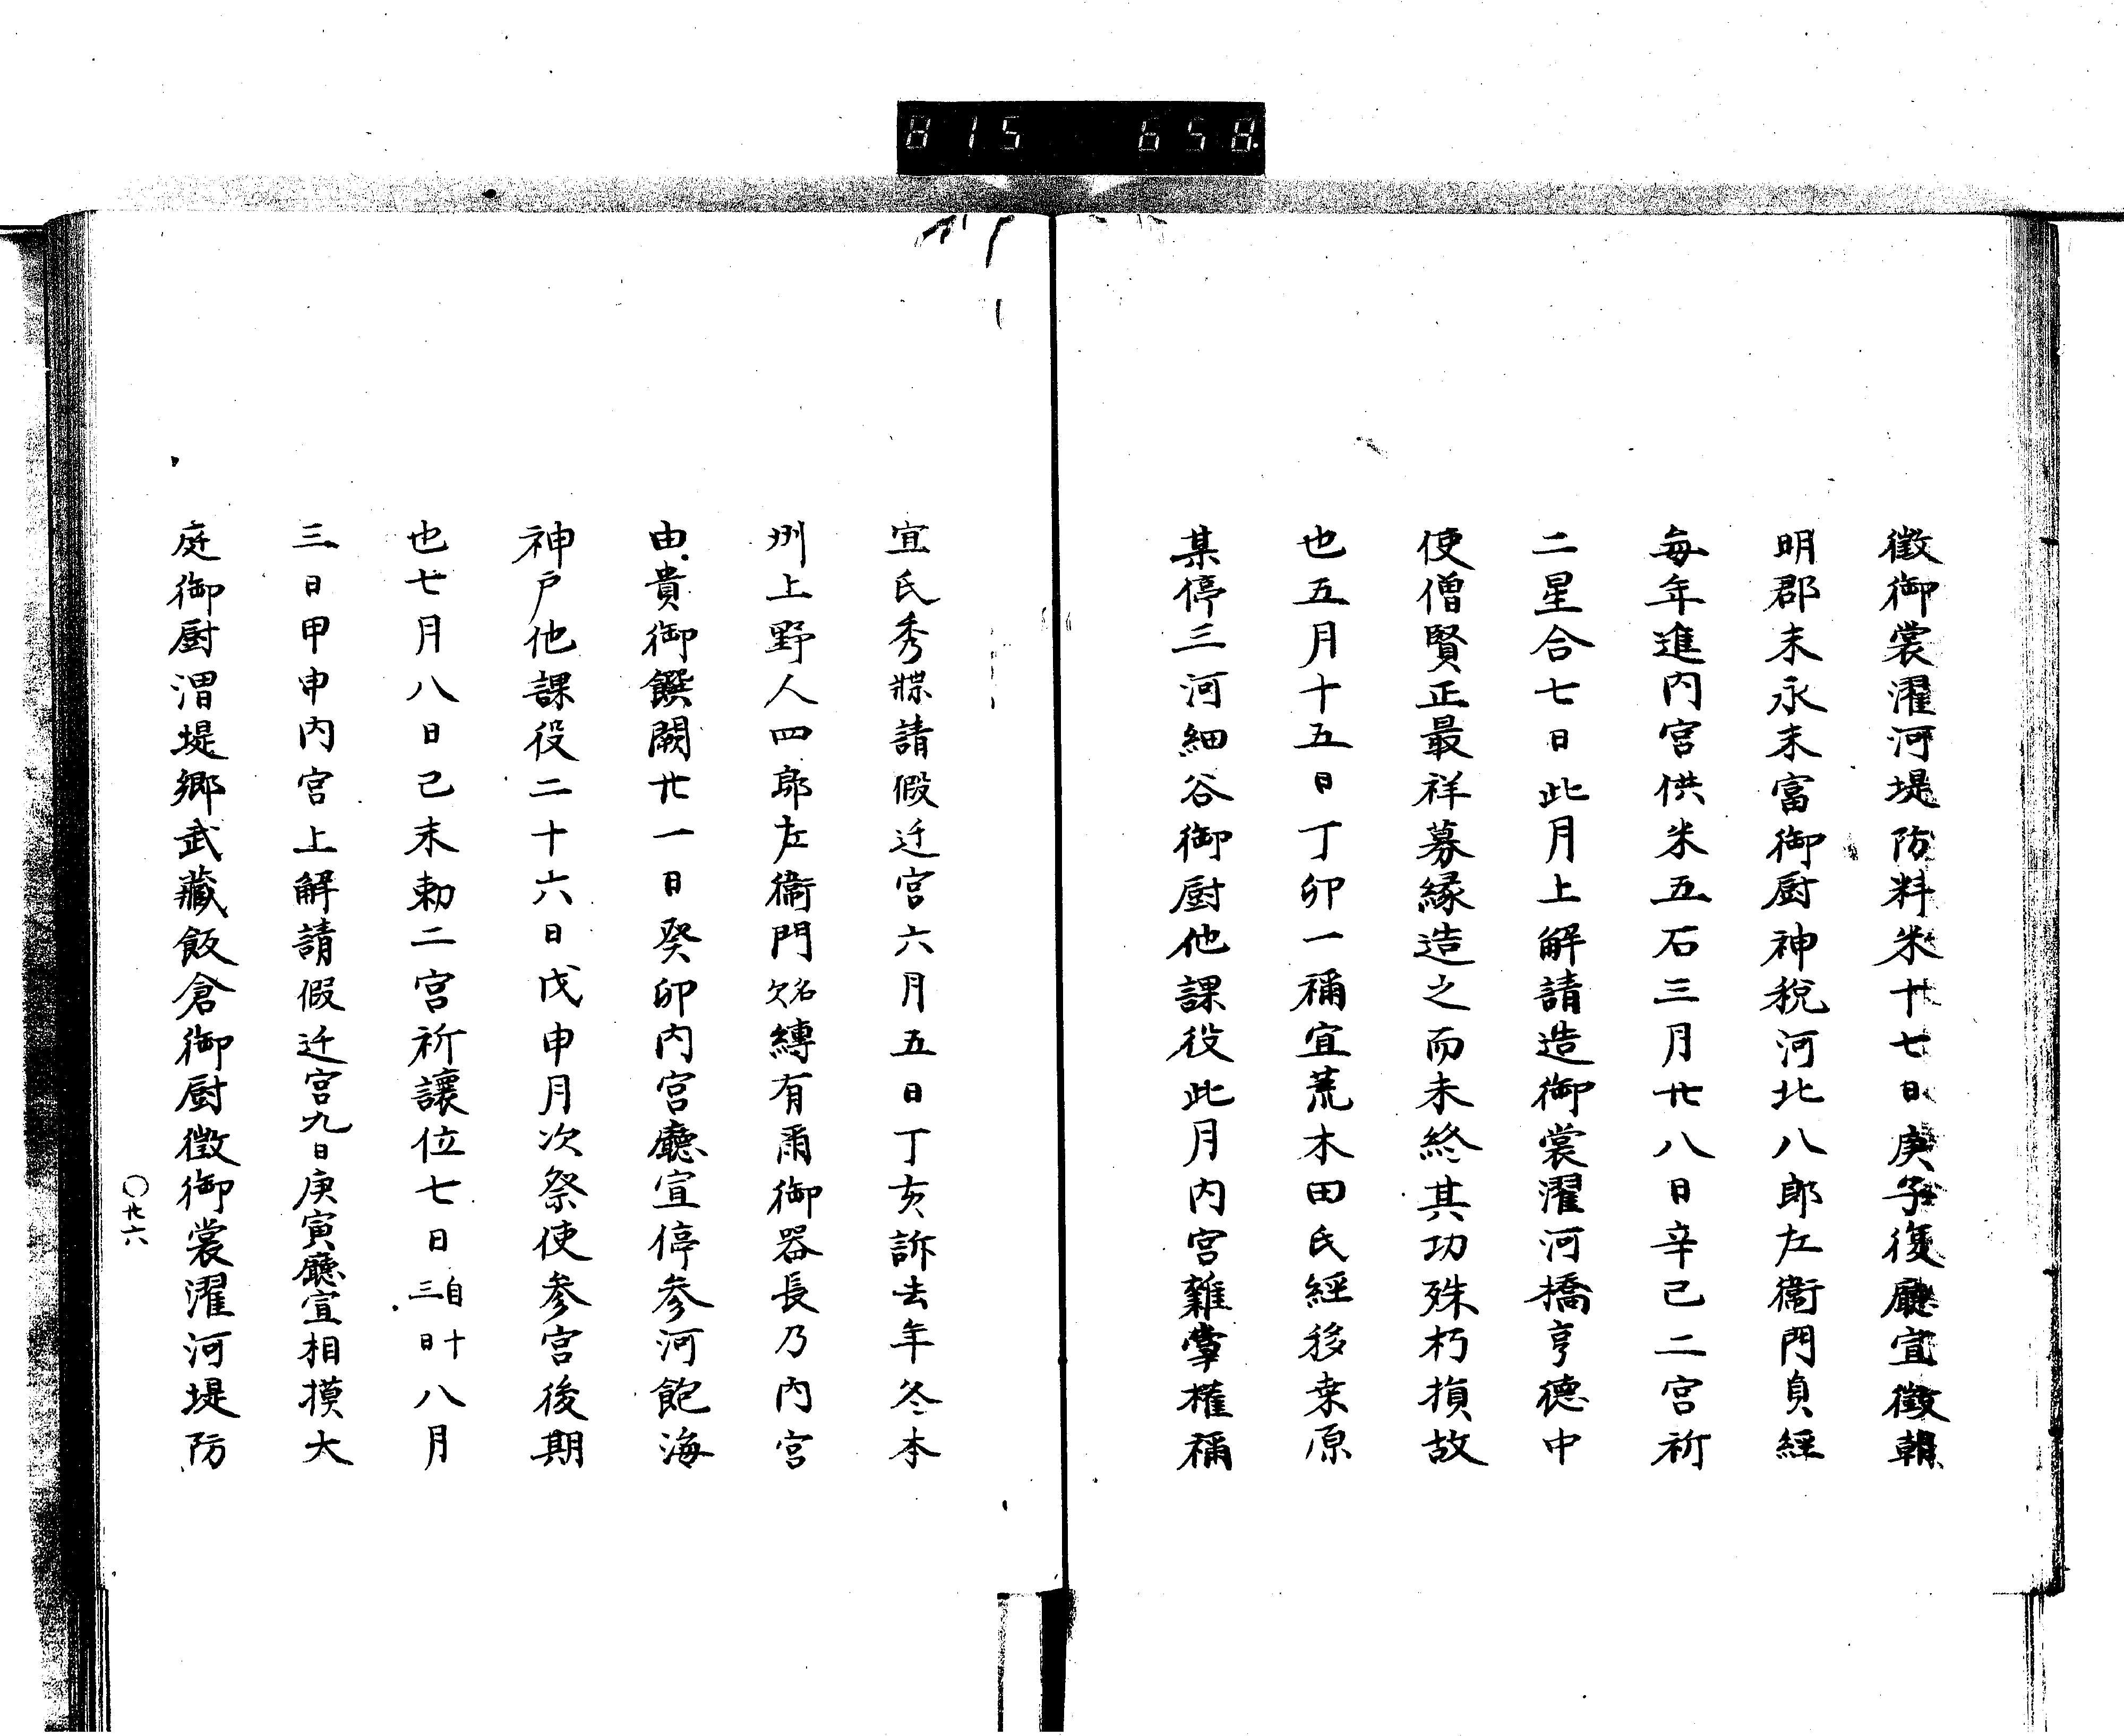 815 658
徴御裳濯河堤防料米十七日庚子復廳宣徴朝
明郡末永末富御厨神税河北八郎左衛門負経
毎年進内宮供米五石三月廿八日辛巳二宮祈
二星合七日此月上解請造御裳濯河橋亨徳中
使僧賢正最祥募縁造之而未終其功殊朽損故
也五月十五日丁卯一禰宜荒木田氏経移桒原
某停三河細谷御厨他課役此月内宮雜掌權禰
宜氏秀牒請假迁宮六月五日丁亥訴去年冬本
州上野人四郎左衛門名欠縛有爾御器長乃内宮
由貴御饌闕廿一日癸卯内宮廳宣停参河飽海
神戸他課役二十六日戊申月次祭使参宮後期
也七月八日己未勅二宮祈讓位七日自十三日八月
三日甲申内宮上解請假迁宮九日庚寅廳宣相摸大
庭御厨渭堤郷武藏飯倉御厨徴御裳濯河堤防
〇廿六